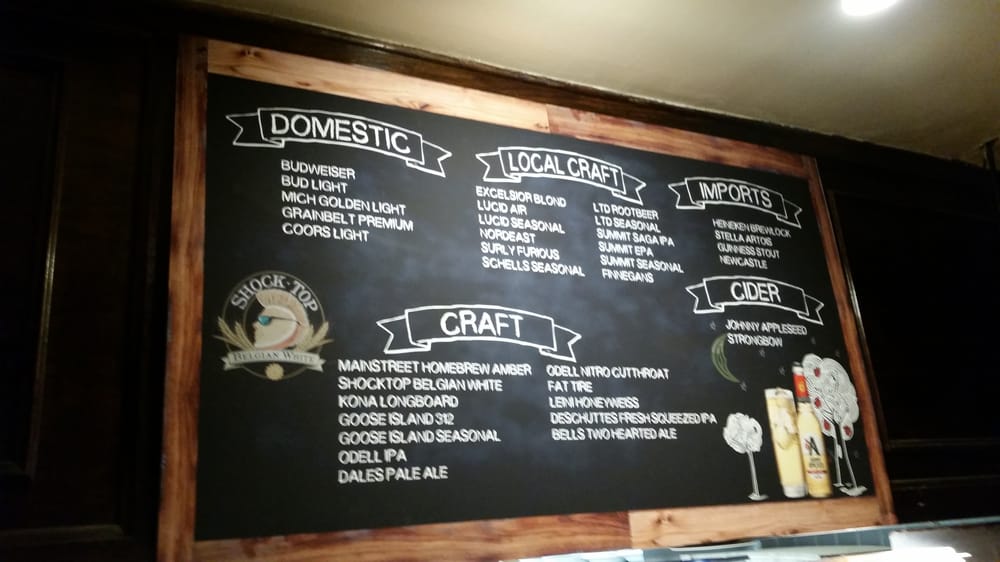 DOMESTIC
BUDWEISER
BUD LIGHT
MICH GOLDEN LIGHT
GRAINBELT PREMIUM
COORS LIGHT
LOCAL CRAFT
EXCELSIOR BLOND
LUCID AIR
LUCID SEASONAL
NORDEAST
SURLY FURIOUS
SCHELLS SEASONAL
LTD ROOTBEER
LTD SEASONAL
SUMMIT SAGA IPA
SUMMIT EPA
SUMMIT SEASONAL
FINNEGANS
IMPORTS
HEINEKEN BREWLOCK
STELLA ARTOIS
GUINNESS STOUT
NEWCASTLE
CIDER
JOHNNY APPLESEED
STRONGBOW
SHOCK·TOP
BELGIAN WHITE
CRAFT
MAINSTREET HOMEBREW AMBER
SHOCKTOP BELGIAN WHITE
KONA LONGBOARD
GOOSE ISLAND 312
GOOSE ISLAND SEASONAL
ODELL IPA
DALES PALE ALE
ODELL NITRO CUTTHROAT
FAT TIRE
LEINI HONEYWEISS
DESCHUTTES FRESH SQUEEZED IPA
BELLS TWO HEARTED ALE